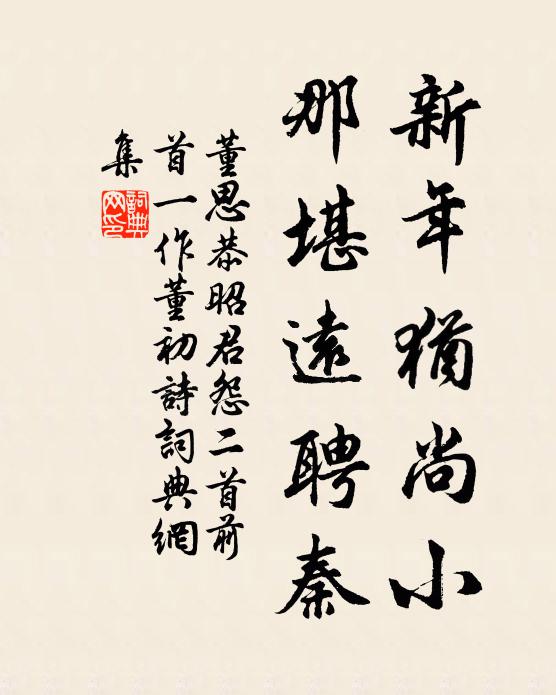 新年猶尚小
那堪遠聘秦
董思恭昭君怨二首前
首一作董初詩詞典網
集
詞典網印